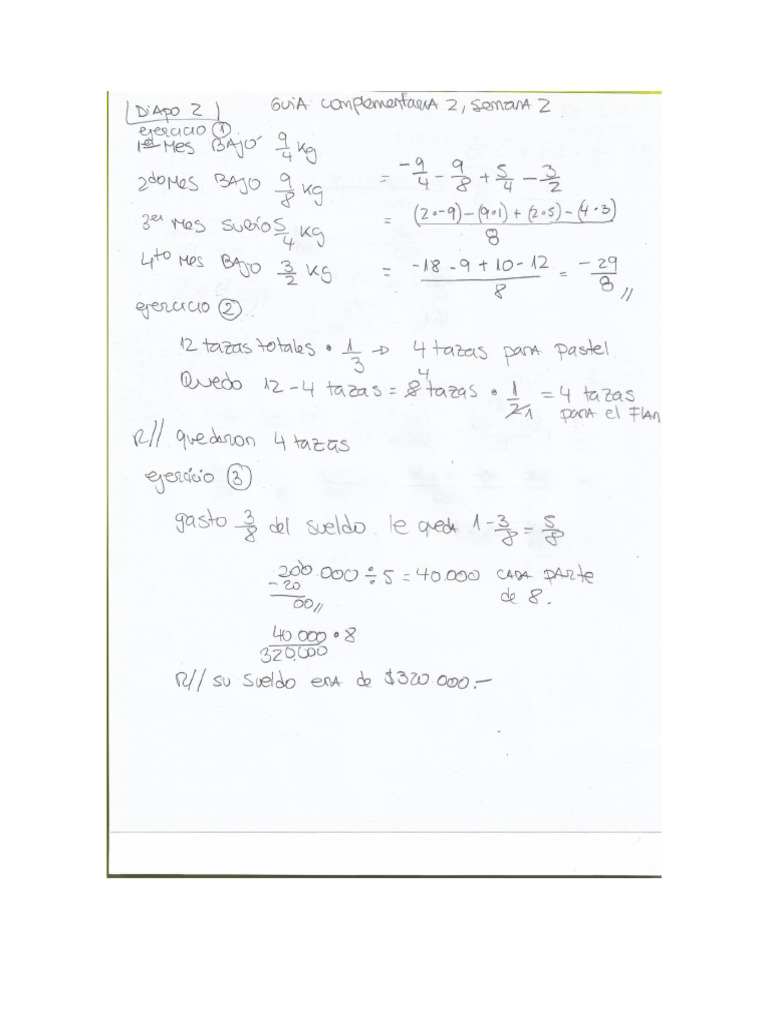 Diapo 2 Guia complementaria 2, semana 2
ejercicio ①
1er Mes BAJO 9/4 Kg
2do Mes BAJO 9/8 Kg = -9/4 - 9/8 + 5/4 - 3/2
3er Mes SUBIO 5/4 KG = (2·-9)-(9·1)+(2·5)-(4·3) / 8
4to Mes BAJO 3/2 Kg = -18-9+10-12 / 8 = -29/8 //
ejercicio ②
12 tazas totales · 1/3 → 4 tazas para pastel
Quedo 12-4 tazas = 8 tazas · 1/2 = 4 tazas
4 1
para el Flan
R// quedaron 4 tazas
ejercicio ③
gasto 3/8 del sueldo. le queda 1-3/8 = 5/8
200.000 ÷ 5 = 40.000 CADA PARTE
-20 de 8.
00//
40.000 · 8
320.000
R// su sueldo era de $320.000.-